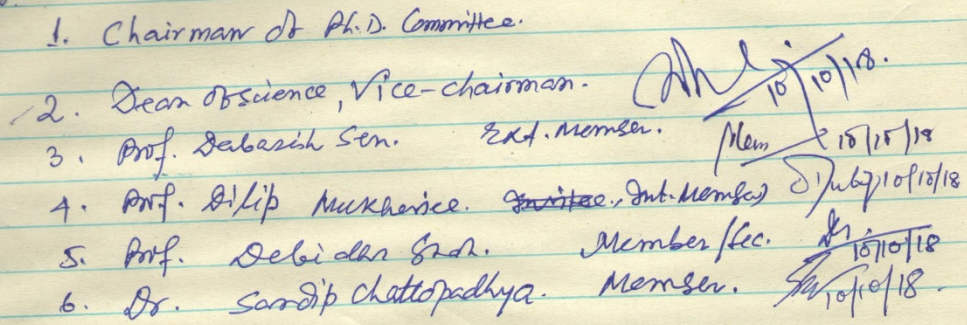 1. Chairman of Ph.D. Committee.
2. Dean of science, Vice-chairman. 10/10/18.
3. Prof. Debasish Sen. Ext. Member. 10/10/18
4. Prof. Dilip Mukherjee. Invitee, Int. Member) 10/10/18
5. Prof. Member/Sec. 10/10/18
6. Dr. Sandip Chattopadhya. Member. 10/10/18.